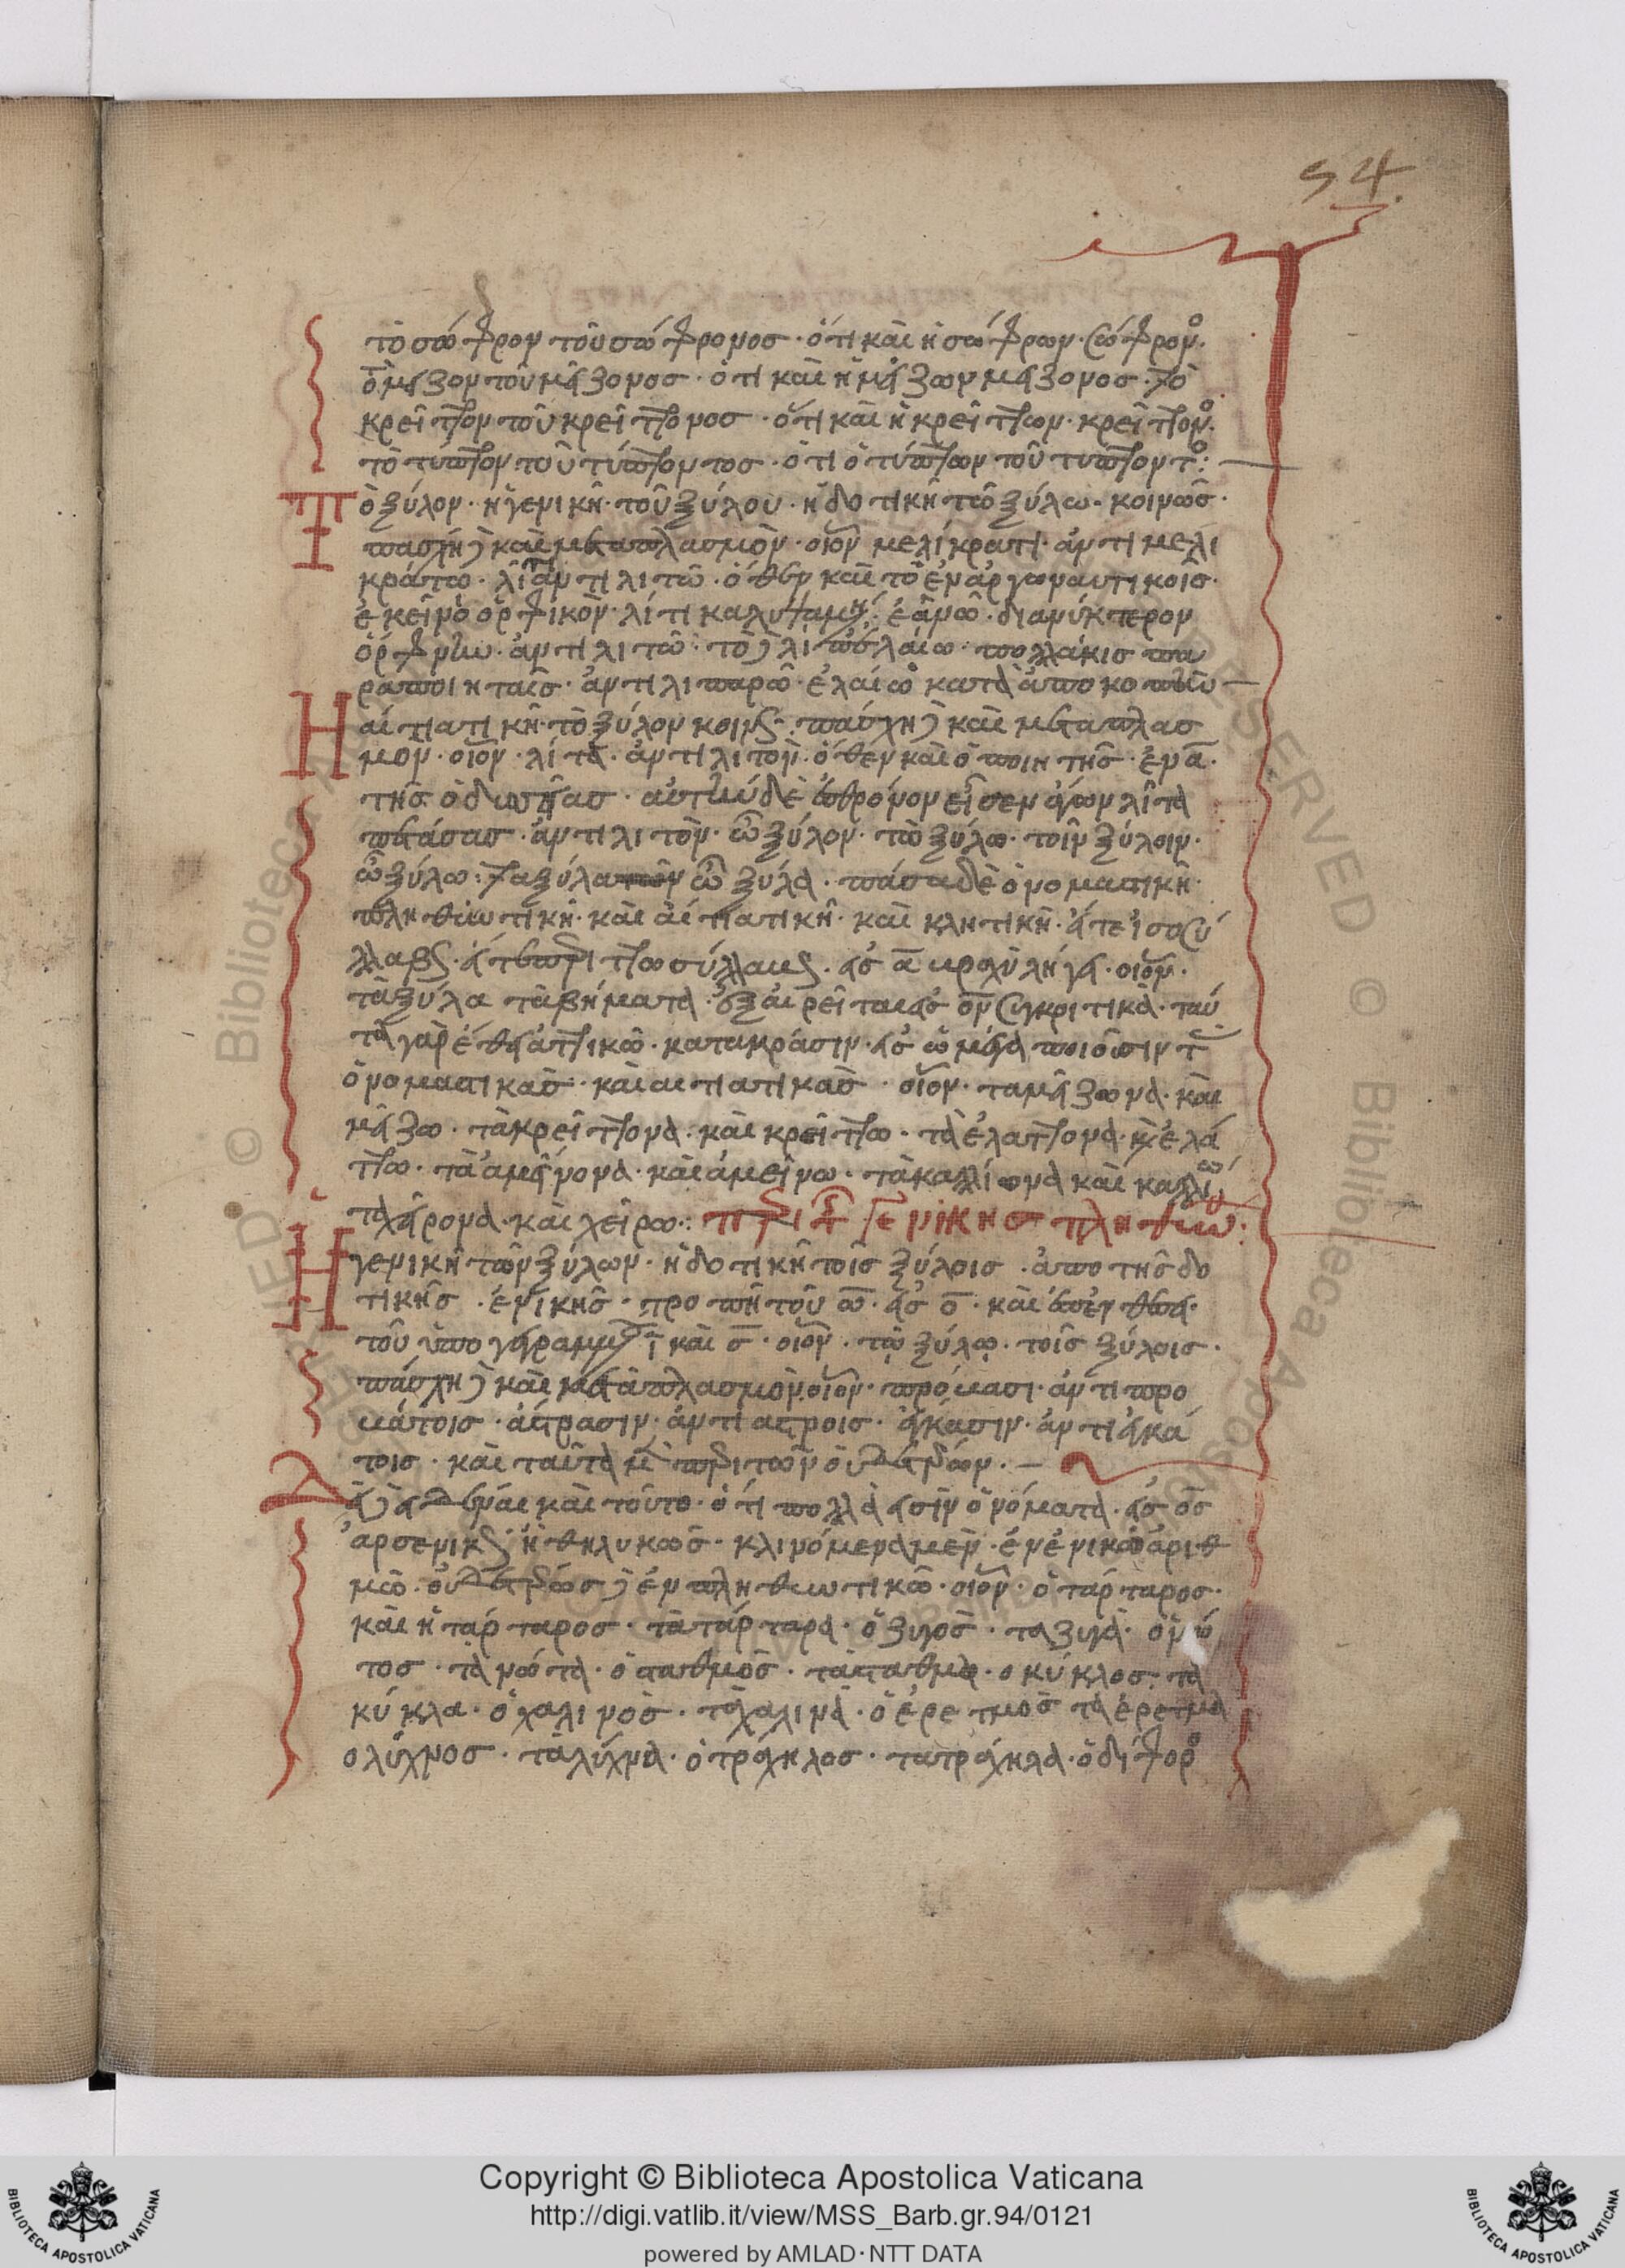 54.
τὸ σώφρον τοῦ σώφρονος · ὅτι καὶ ἡ σώφρων · σώφρονος.
τὸ μεῖζον τοῦ μείζονος · ὅτι καὶ ἡ μείζων μείζονος · τὸ
κρεῖττον τοῦ κρείττονος · ὅτι καὶ ἡ κρείττων · κρείττονος.
τὸ τύπτον τοῦ τύπτοντος · ὅτι ὁ τύπτων τοῦ τύπτοντος :
Τὸ ξύλον · ἡ γενικὴ · τοῦ ξύλου · ἡ δοτικὴ τῶ ξύλω · κοινῶς ·
πάσχει δὲ καὶ μεταπλασμὸν · οἷον μελίκρατι · ἀντὶ μελι
κράτω · λιτὶ ἀντὶ λιτῶ · ὅθεν καὶ τὸ ἐν ἀργοναυτικοῖς ·
ἐκεῖνο ὀρφικὸν · λιτὶ διανύκτερον
ὄρφνην · ἀντὶ λιτῶ · τὸ δὲ λίπ' ἐλαίω · πολλάκις πα
ρὰ ποιηταῖς · ἀντὶ λιπαρῶ · ἐλαίω κατὰ ἀποκοπὴν
Ἡ αἰτιατικὴ · τὸ ξύλον κοινῶς · πάσχει δὲ καὶ μεταπλασ
μὸν · οἷον · λῖτα · ἀντὶ λιτὸν · ὅθεν καὶ ὁ ποιητὴς · ἐν α ·
τῆς ὀδυσσείας · αὐτὴν δὲ ἐς θρόνον εἷσεν ἄγων λῖτα
πετάσσας · ἀντὶ λιτὸν · ὦ ξύλον · τὼ ξύλω · τοῖν ξύλοιν ·
ὦ ξύλω : τὰ ξύλα ὦ ξύλα · πᾶσα δὲ ὀνοματικὴ
πληθυντικὴ · καὶ αἰτιατικὴ · καὶ κλητικὴ · εἴτε ἰσοσυ
λλαβῶς · εἴτε περιττοσύλλαβος · εἰς α λήγει · οἷον ·
τὰ ξύλα τὰ βήματα · ἐξαιρεῖται εἰς ον συγκριτικὰ · ταῦ
τα γὰρ ἔθει ἀττικῶ · κατὰ κράσιν · εἰς ω μέγα ποιοῦσιν τὰς
ὀνοματικὰς · καὶ αἰτιατικὰς · οἷον · τὰ μείζωνα · καὶ
μείζω · τὰ κρείττονα · καὶ κρείττω · τὰ ἐλάττονα · καὶ ἐλά
ττω · τὰ ἀμείνονα · καὶ ἀμείνω · τὰ καλλίονα καὶ καλλίω
τὰ χείρονα · καὶ χείρω : περὶ τῆς γενικῆς πληθυν :
Ἡ γενικὴ τῶν ξύλων · ἡ δοτικὴ τοῖς ξύλοις · ἀπὸ τῆς δο
τικῆς · ἑνικῆς · τροπῆ τοῦ ω · εἰς ο · καὶ ἐπενθέσει ·
τοῦ ὑπογεγραμμένου ι καὶ ς · οἷον · τῷ ξύλῳ · τοῖς ξύλοις ·
πάσχει δὲ καὶ μεταπλασμὸν οἷον · προβασι · ἀντὶ προ
βάτοις · ἄστρασιν · ἀντὶ ἄστροις ·
τοις · καὶ ταῦτα μὲν περὶ τῶν οὐδετέρων . –
Δεῖ δὲ εἰδέναι καὶ τοῦτο · ὅτι πολλὰ εἰσὶν ὀνόματα · εἰς ος
ἀρσενικῶς ἢ θηλυκῶς · κλινόμενα μὲν · ἐν ἑνικῶ ἀριθ
μῶ · οὐδετέρως δὲ ἐν πληθυντικῶ · οἷον · ὁ τάρταρος ·
καὶ ἡ τάρταρος · τὰ τάρταρα · ὁ ζυγὸς · τὰ ζυγὰ · ὁ νῶ
τος · τὰ νῶτα · ὁ σταθμὸς · τὰ σταθμὰ · ὁ κύκλος · τὰ
κύκλα · ὁ χαλινὸς · τὰ χαλινὰ · ὁ ἐρετμὸς τὰ ἐρετμὰ
ὁ λύχνος · τὰ λύχνα · ὁ τράχηλος · τὰ τράχηλα · ὁ δίφρος
Copyright © Biblioteca Apostolica Vaticana
http://digi.vatlib.it/view/MSS_Barb.gr.94/0121
powered by AMLAD · NTT DATA
BIBLIOTECA APOSTOLICA VATICANA
BIBLIOTECA APOSTOLICA VATICANA